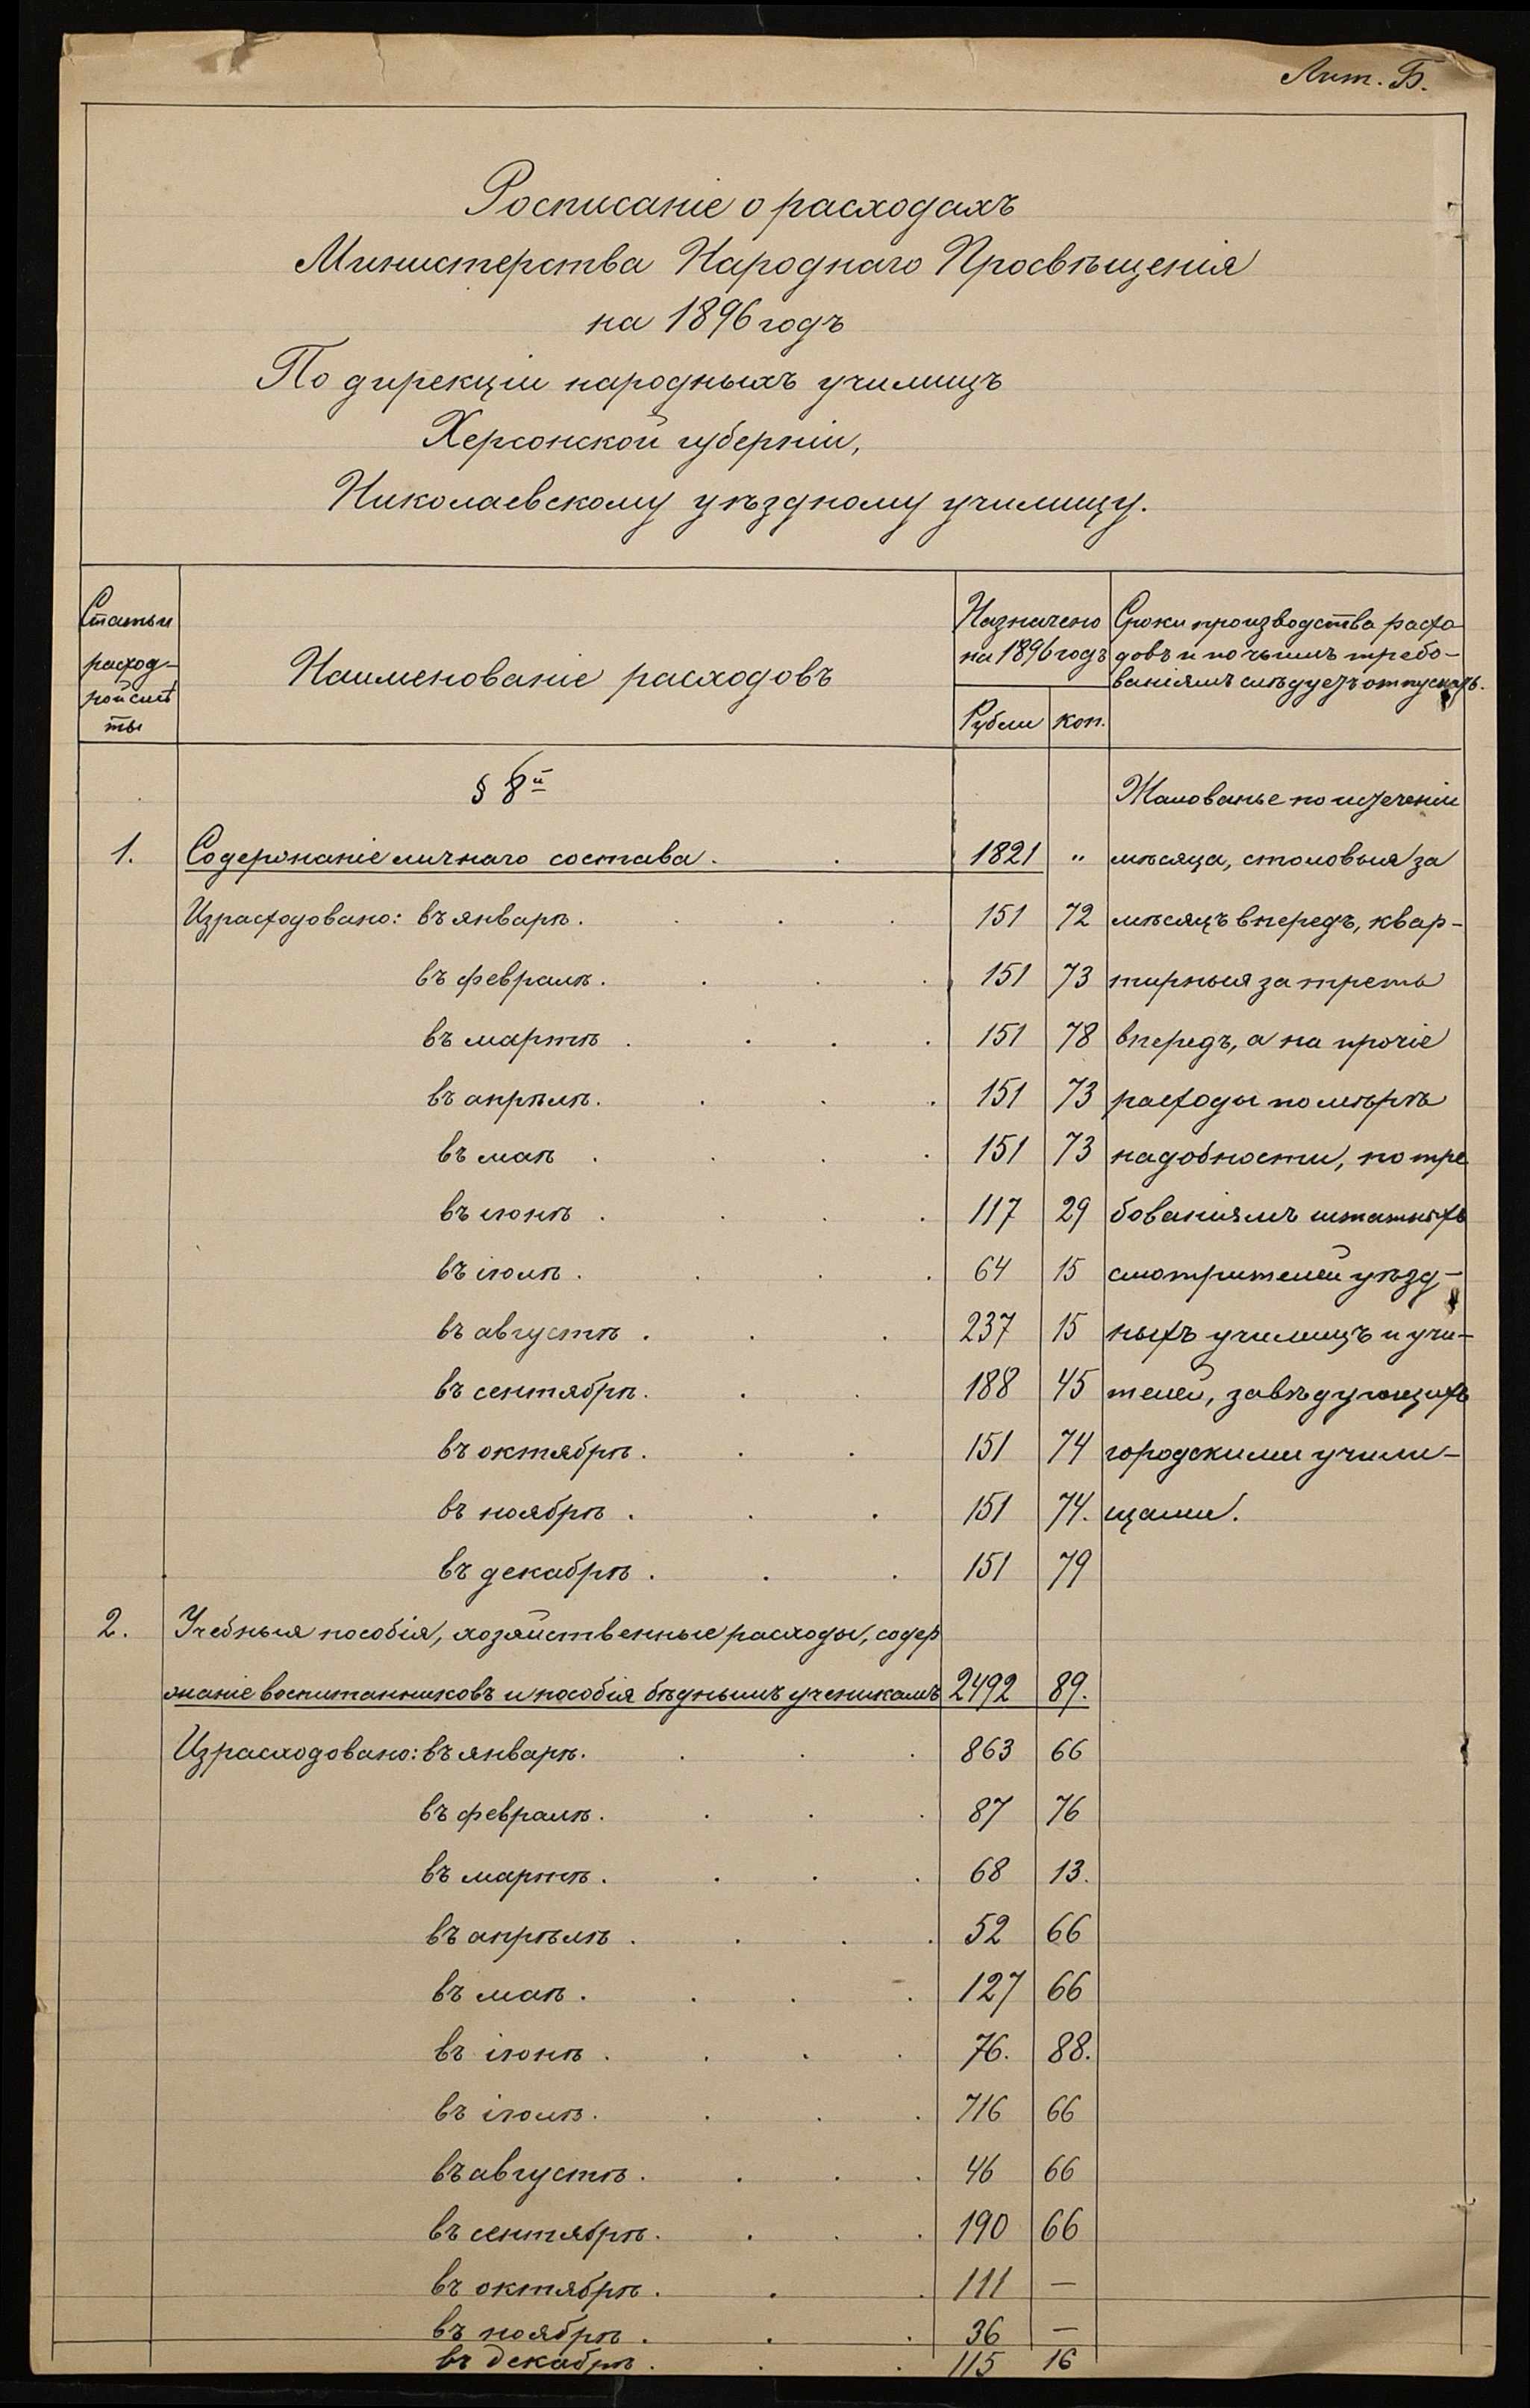 Лит. Б.
Росписаніе о расходахъ
Министерства Народнаго Просвѣщенія
на 1896 годъ
По дирекціи народныхъ училищъ
Херсонской губерніи,
Николаевскому уѣздному училищу.
Статьи
расход-
ной смѣ
ты
Наименованіе расходовъ
Назначено
на 1896 годъ
Рубли коп.
Сроки производства расхо
довъ и по чьимъ требо-
ваніямъ слѣдуетъ отпускать.
§ 8й
Жалованье по истеченіи
1. Содержаніе личнаго состава . . 1821 " мѣсяца, столовыя за
Израсходовано: въ январѣ . . . . 151 72 мѣсяцъ впередъ, квар-
въ февралѣ . . . . 151 73 тирныя за треть
въ мартѣ . . . . 151 78 впередъ, а на прочіе
въ апрѣлѣ . . . . 151 73 расходы по мѣрѣ
въ маѣ . . . . 151 73 надобности, по тре
въ іюнѣ . . . . 117 29 бованіямъ штатныхъ
въ іюлѣ . . . . 64 15 смотрителей уѣзд-
въ августѣ . . . 237 15 ныхъ училищъ и учи-
въ сентябрѣ . . . 188 45 телей, завѣдующихъ
въ октябрѣ . . . 151 74 городскими учили-
въ ноябрѣ . . . 151 74. щами.
въ декабрѣ . . . 151 79
2. Учебныя пособія, хозяйственные расходы, содер
жаніе воспитанниковъ и пособія бѣднымъ ученикамъ 2492 89.
Израсходовано: въ январѣ . . . . 863 66
въ февралѣ . . . . 87 76
въ мартѣ . . . . 68 13.
въ апрѣлѣ . . . . 52 66
въ маѣ . . . . 127 66
въ іюнѣ . . . . 76. 88.
въ іюлѣ . . . . 716 66
въ августѣ . . . . 46 66
въ сентябрѣ . . . . 190 66
въ октябрѣ . . . 111 —
въ ноябрѣ . . . 36 —
въ декабрѣ . . . 115 16